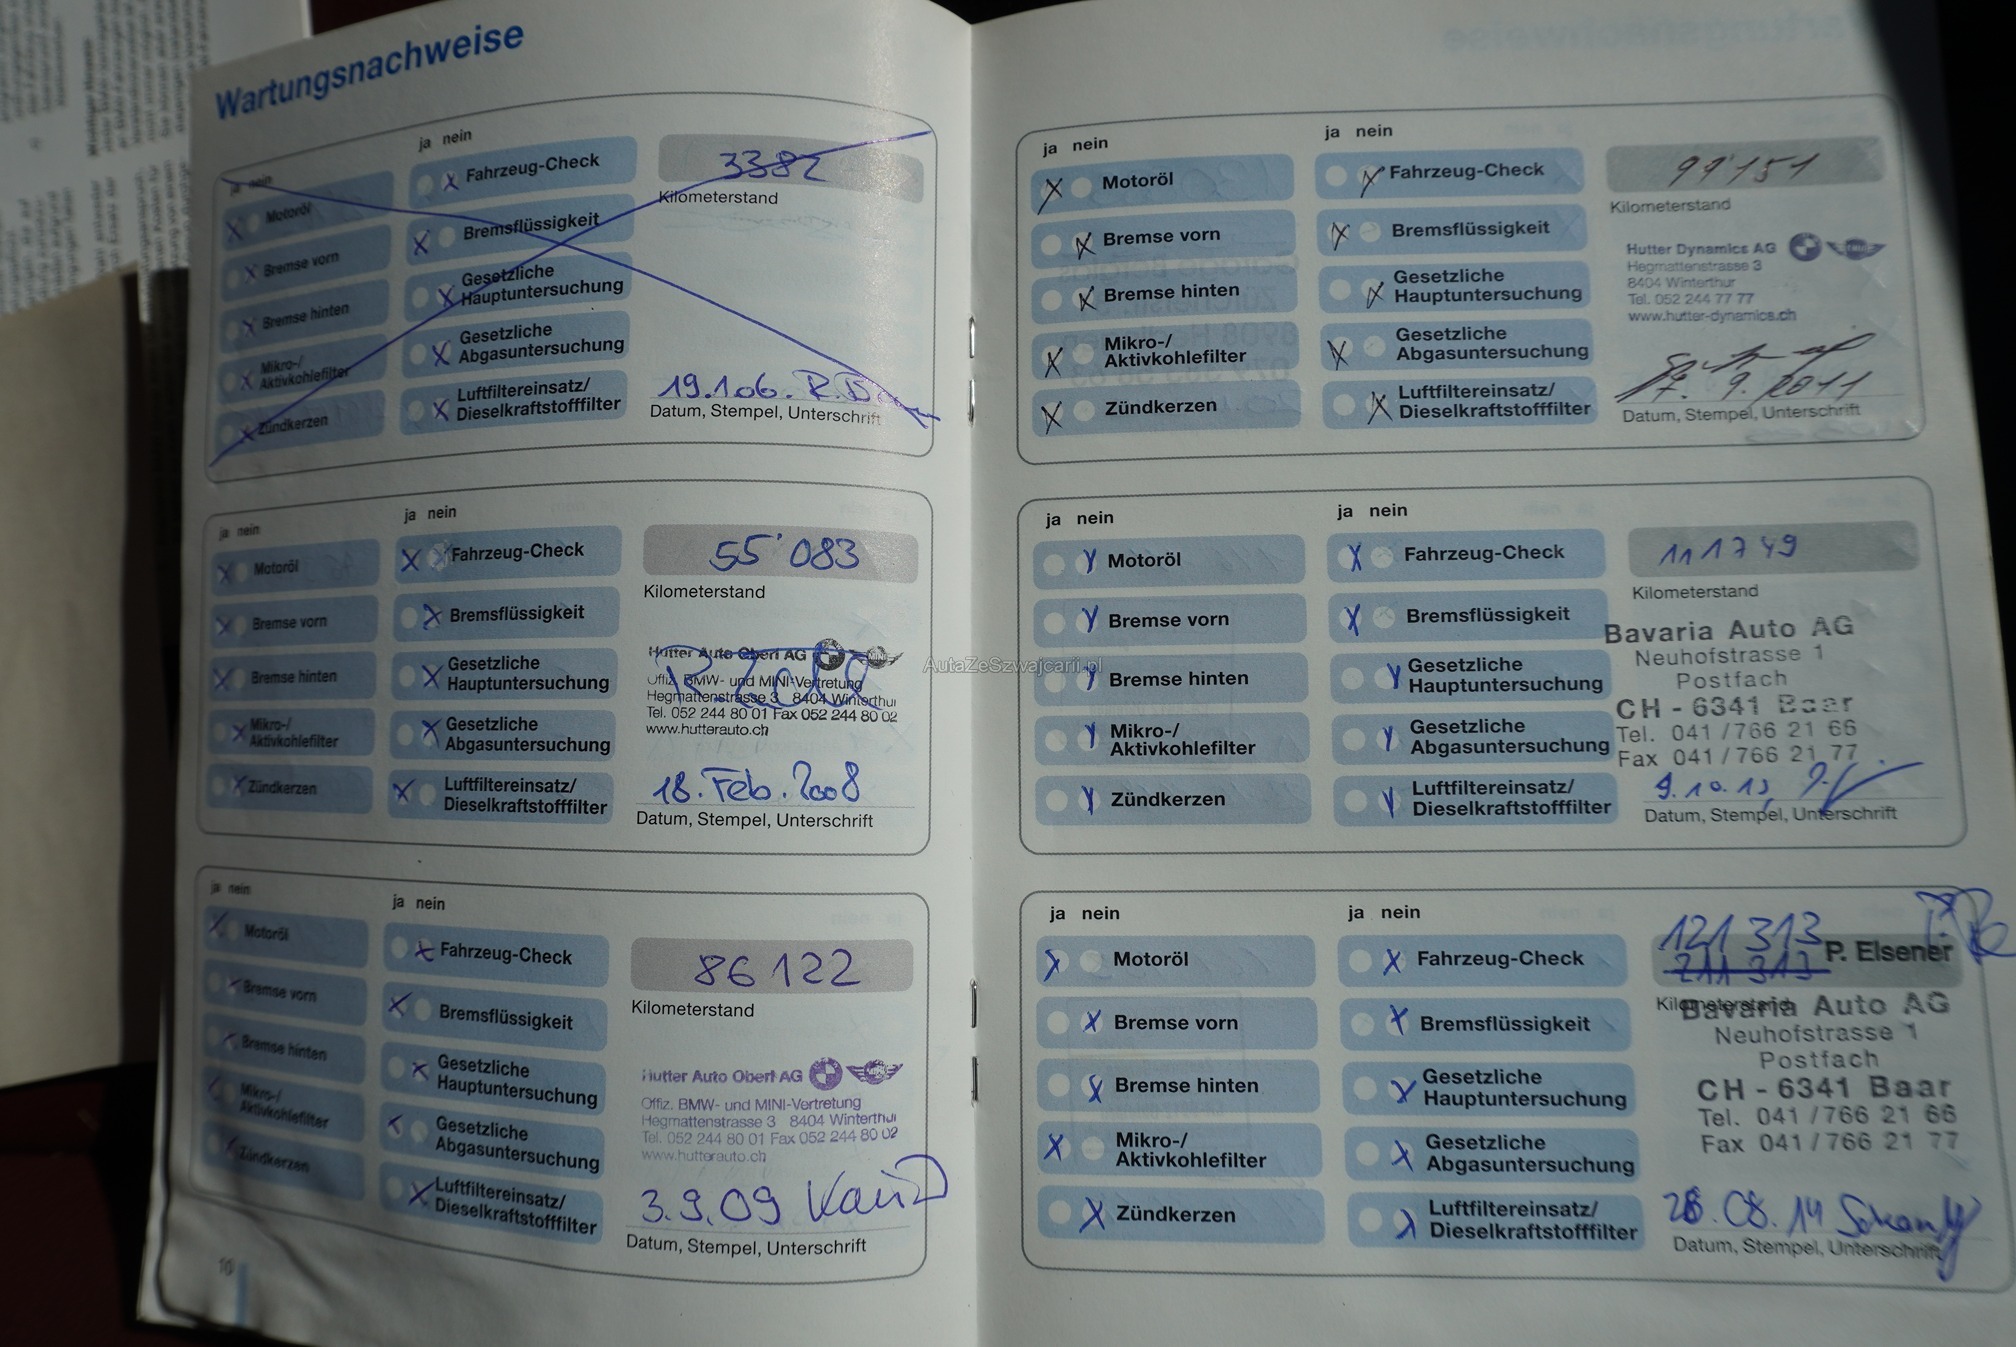 Wartungsnachweise
ja nein
ja nein
Motoröl
Bremse vorn
Bremse hinten
Mikro-/
Aktivkohlefilter
Zündkerzen
Fahrzeug-Check
Bremsflüssigkeit
Gesetzliche
Hauptuntersuchung
Gesetzliche
Abgasuntersuchung
Luftfiltereinsatz/
Dieselkraftstofffilter
3382
Kilometerstand
19.1.06. R.
Datum, Stempel, Unterschrift
ja nein
ja nein
Motoröl
Bremse vorn
Bremse hinten
Mikro-/
Aktivkohlefilter
Zündkerzen
Fahrzeug-Check
Bremsflüssigkeit
Gesetzliche
Hauptuntersuchung
Gesetzliche
Abgasuntersuchung
Luftfiltereinsatz/
Dieselkraftstofffilter
55'083
Kilometerstand
Hutter Auto Oberi AG
Offiz. BMW- und MINI-Vertretung
Hegmattenstrasse 3 8404 Winterthur
Tel. 052 244 80 01 Fax 052 244 80 02
www.hutterauto.ch
18. Feb. 2008
Datum, Stempel, Unterschrift
ja nein
ja nein
Motoröl
Bremse vorn
Bremse hinten
Mikro-/
Aktivkohlefilter
Zündkerzen
Fahrzeug-Check
Bremsflüssigkeit
Gesetzliche
Hauptuntersuchung
Gesetzliche
Abgasuntersuchung
Luftfiltereinsatz/
Dieselkraftstofffilter
86122
Kilometerstand
Hutter Auto Oberi AG
Offiz. BMW- und MINI-Vertretung
Hegmattenstrasse 3 8404 Winterthur
Tel. 052 244 80 01 Fax 052 244 80 02
www.hutterauto.ch
3.9.09
Datum, Stempel, Unterschrift
10
ja nein
ja nein
Motoröl
Bremse vorn
Bremse hinten
Mikro-/
Aktivkohlefilter
Zündkerzen
Fahrzeug-Check
Bremsflüssigkeit
Gesetzliche
Hauptuntersuchung
Gesetzliche
Abgasuntersuchung
Luftfiltereinsatz/
Dieselkraftstofffilter
99'151
Kilometerstand
Hutter Dynamics AG
Hegmattenstrasse 3
8404 Winterthur
Tel. 052 244 77 77
www.hutter-dynamics.ch
9. 2011
Datum, Stempel, Unterschrift
ja nein
ja nein
Motoröl
Bremse vorn
Bremse hinten
Mikro-/
Aktivkohlefilter
Zündkerzen
Fahrzeug-Check
Bremsflüssigkeit
Gesetzliche
Hauptuntersuchung
Gesetzliche
Abgasuntersuchung
Luftfiltereinsatz/
Dieselkraftstofffilter
111749
Kilometerstand
Bavaria Auto AG
Neuhofstrasse 1
Postfach
CH - 6341 Baar
Tel. 041/766 21 66
Fax 041/766 21 77
9.10.13
Datum, Stempel, Unterschrift
ja nein
ja nein
Motoröl
Bremse vorn
Bremse hinten
Mikro-/
Aktivkohlefilter
Zündkerzen
Fahrzeug-Check
Bremsflüssigkeit
Gesetzliche
Hauptuntersuchung
Gesetzliche
Abgasuntersuchung
Luftfiltereinsatz/
Dieselkraftstofffilter
121 313
211 313
P. Elsener
Kilometerstand
Bavaria Auto AG
Neuhofstrasse 1
Postfach
CH - 6341 Baar
Tel. 041/766 21 66
Fax 041/766 21 77
28.08.14
Datum, Stempel, Unterschrift
AutaZeSzwajcarii.pl